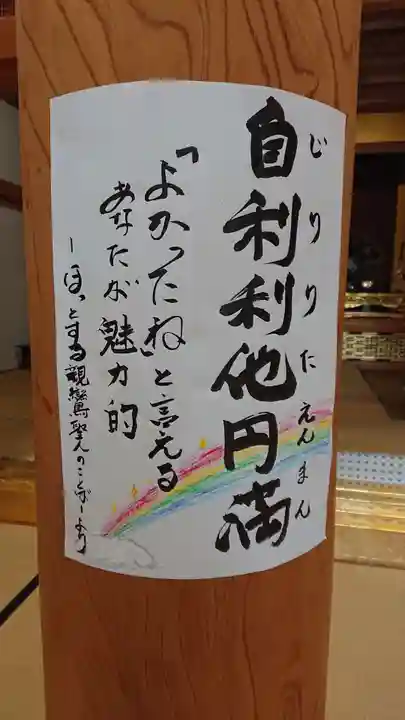 自利利他円満
じりりたえんまん
「よかったね」と言える
あなたが魅力的
ーほっとする親鸞聖人のことばーより